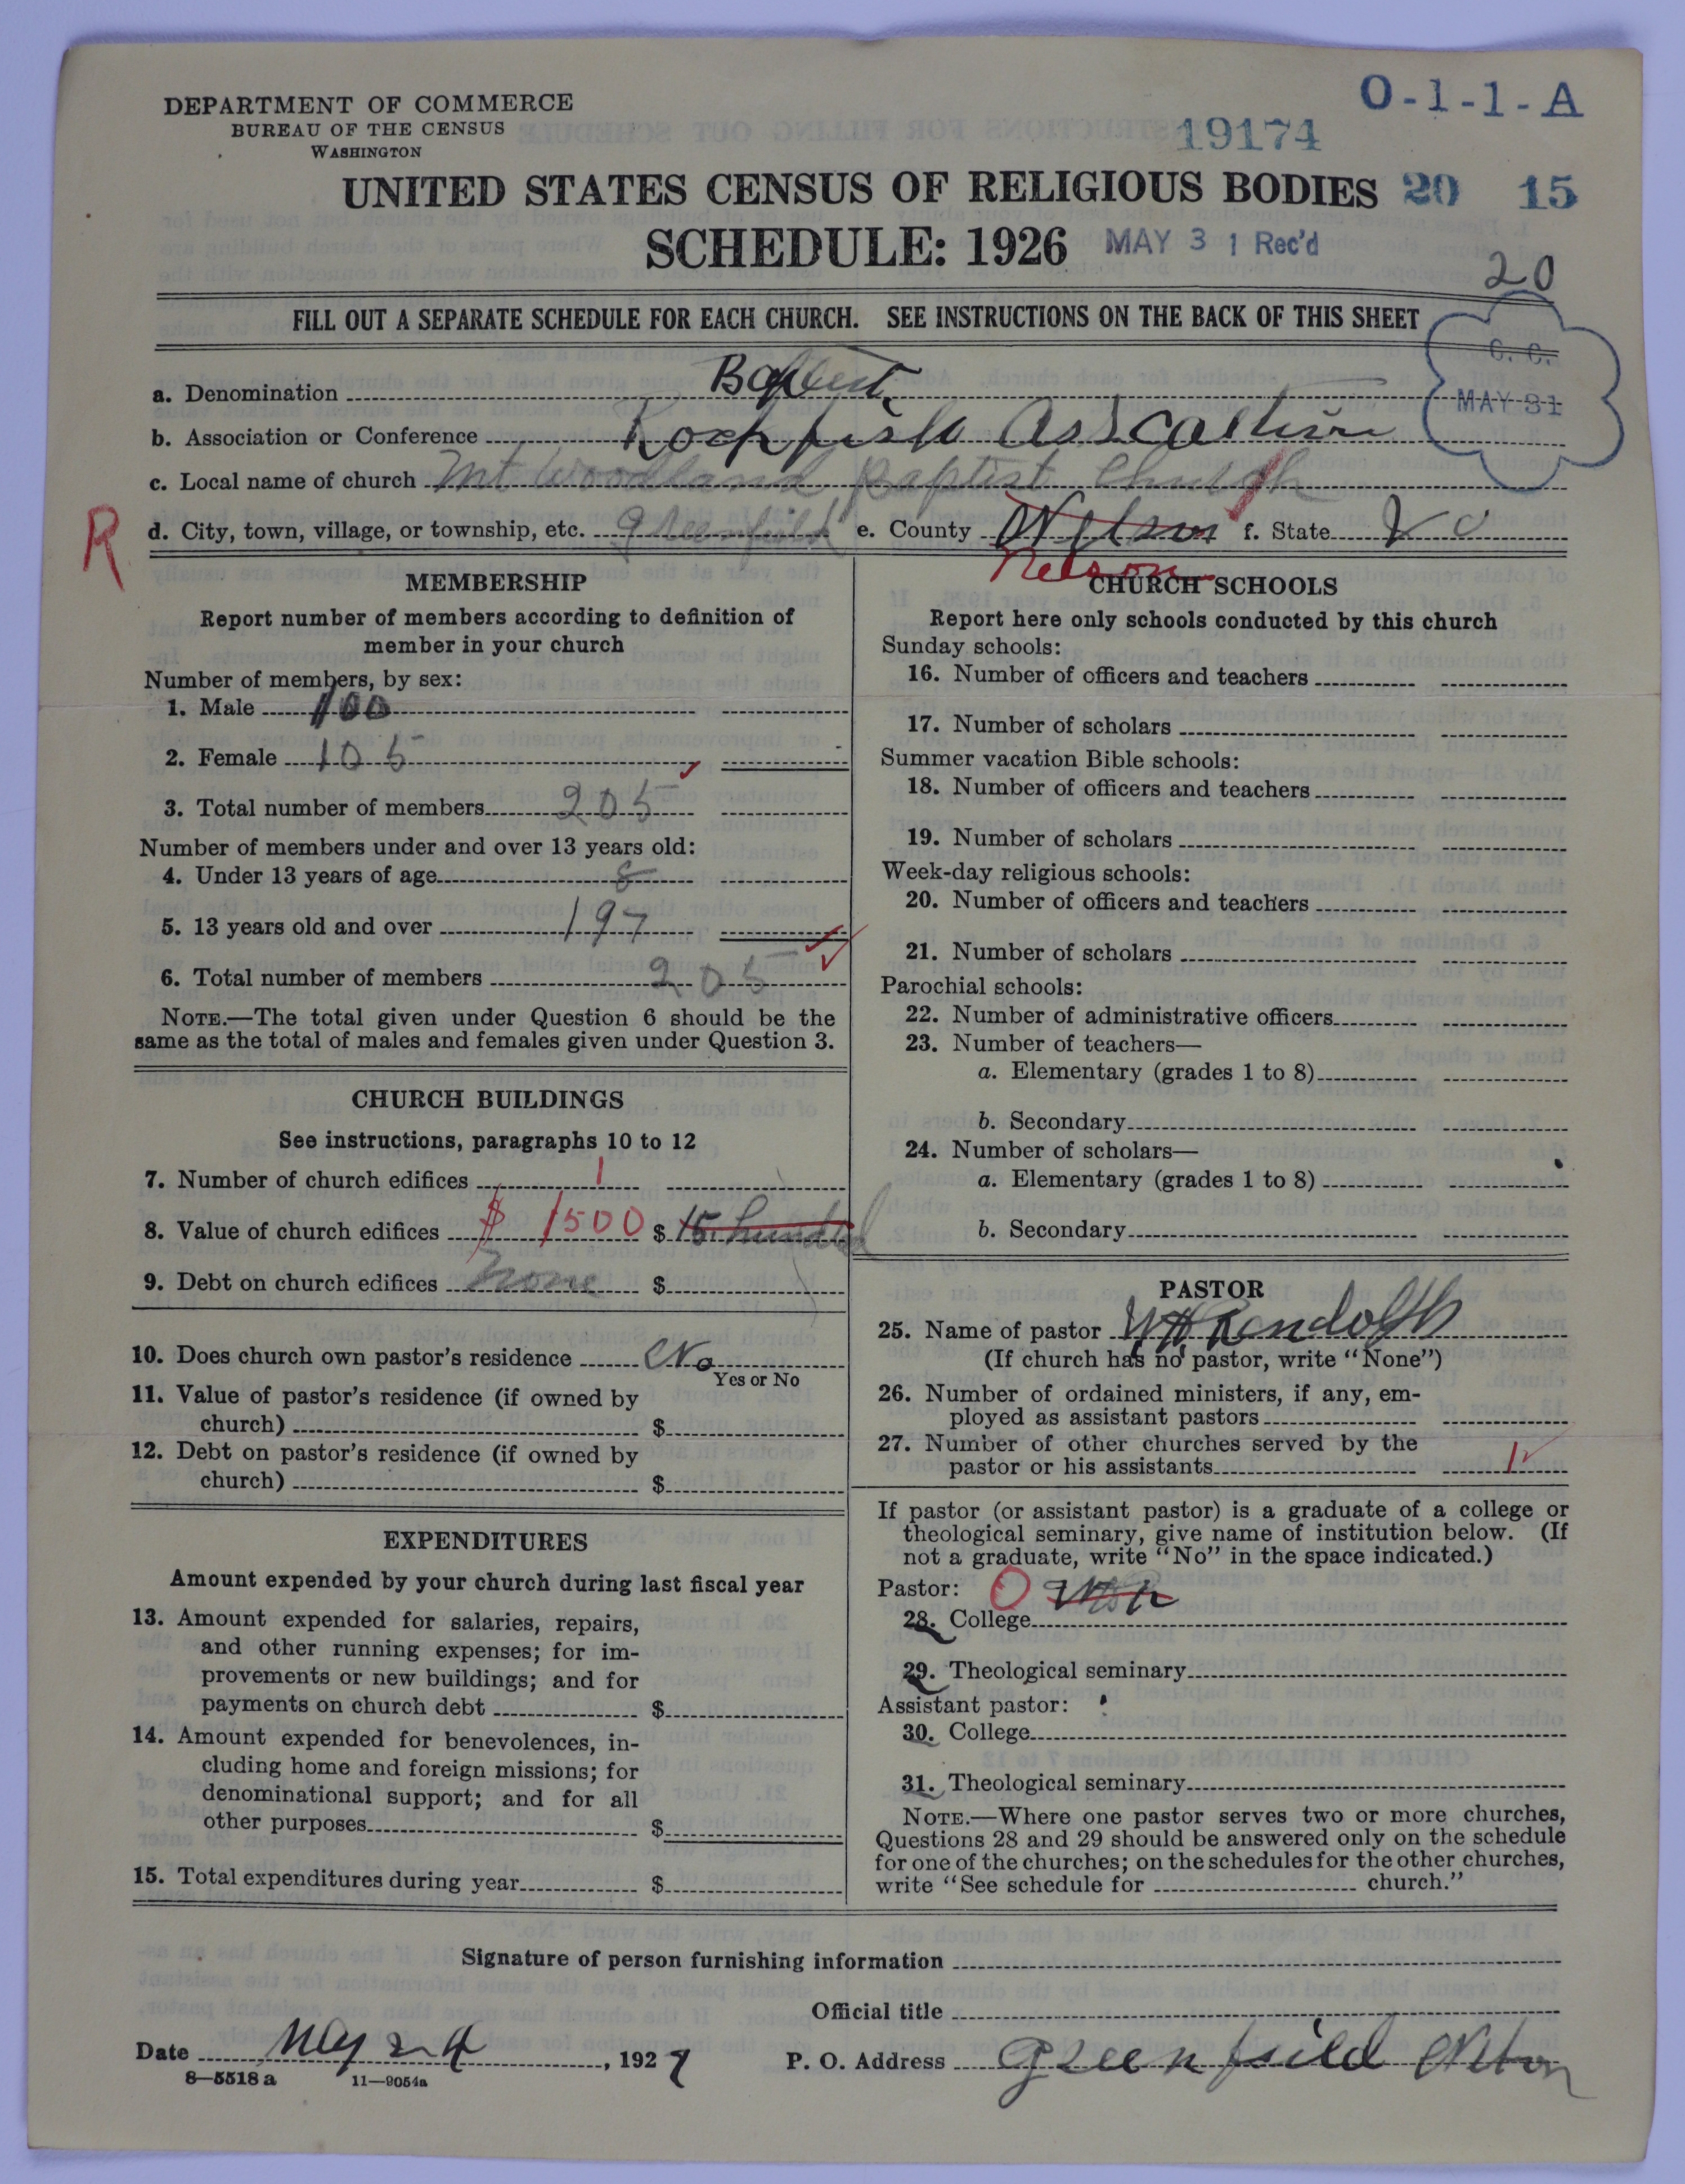 DEPARTMENT OF COMMERCE
BUREAU OF THE CENSUS
WASHINGTON
O-1-1-A
19174
UNITED STATES CENSUS OF RELIGIOUS BODIES 20 15
SCHEDULE: 1926 MAY 31 Rec'd
20
FILL OUT A SEPARATE SCHEDULE FOR EACH CHURCH. SEE INSTRUCTIONS ON THE BACK OF THIS SHEET
C. C.
MAY 31
a. Denomination Baptist
b. Association or Conference Rockfish
c. Local name of church Mt Woodland Baptist Church
R
d. City, town, village, or township, etc. Greenfield e. County Nelson f. State Va
Nelson
MEMBERSHIP
Report number of members according to definition of
member in your church
Number of members, by sex:
1. Male 100
2. Female 105
3. Total number of members 205
Number of members under and over 13 years old:
4. Under 13 years of age 8
5. 13 years old and over 197
6. Total number of members 205
NOTE.—The total given under Question 6 should be the
same as the total of males and females given under Question 3.
CHURCH BUILDINGS
See instructions, paragraphs 10 to 12
7. Number of church edifices 1
8. Value of church edifices $ 1500 $ 15 hundred
9. Debt on church edifices none $
10. Does church own pastor's residence No
Yes or No
11. Value of pastor's residence (if owned by
church) $
12. Debt on pastor's residence (if owned by
church) $
EXPENDITURES
Amount expended by your church during last fiscal year
13. Amount expended for salaries, repairs,
and other running expenses; for im-
provements or new buildings; and for
payments on church debt $
14. Amount expended for benevolences, in-
cluding home and foreign missions; for
denominational support; and for all
other purposes $
15. Total expenditures during year $
CHURCH SCHOOLS
Report here only schools conducted by this church
Sunday schools:
16. Number of officers and teachers
17. Number of scholars
Summer vacation Bible schools:
18. Number of officers and teachers
19. Number of scholars
Week-day religious schools:
20. Number of officers and teachers
21. Number of scholars
Parochial schools:
22. Number of administrative officers
23. Number of teachers—
a. Elementary (grades 1 to 8)
b. Secondary
24. Number of scholars—
a. Elementary (grades 1 to 8)
b. Secondary
PASTOR
25. Name of pastor W H Randolph
(If church has no pastor, write "None")
26. Number of ordained ministers, if any, em-
ployed as assistant pastors
27. Number of other churches served by the
pastor or his assistants 1
If pastor (or assistant pastor) is a graduate of a college or
theological seminary, give name of institution below. (If
not a graduate, write "No" in the space indicated.)
Pastor: O
28. College
29. Theological seminary
Assistant pastor:
30. College
31. Theological seminary
NOTE.—Where one pastor serves two or more churches,
Questions 28 and 29 should be answered only on the schedule
for one of the churches; on the schedules for the other churches,
write "See schedule for church."
Signature of person furnishing information
Official title
Date May 24, 1927 P. O. Address Greenfield
8—5518a 11—9054a